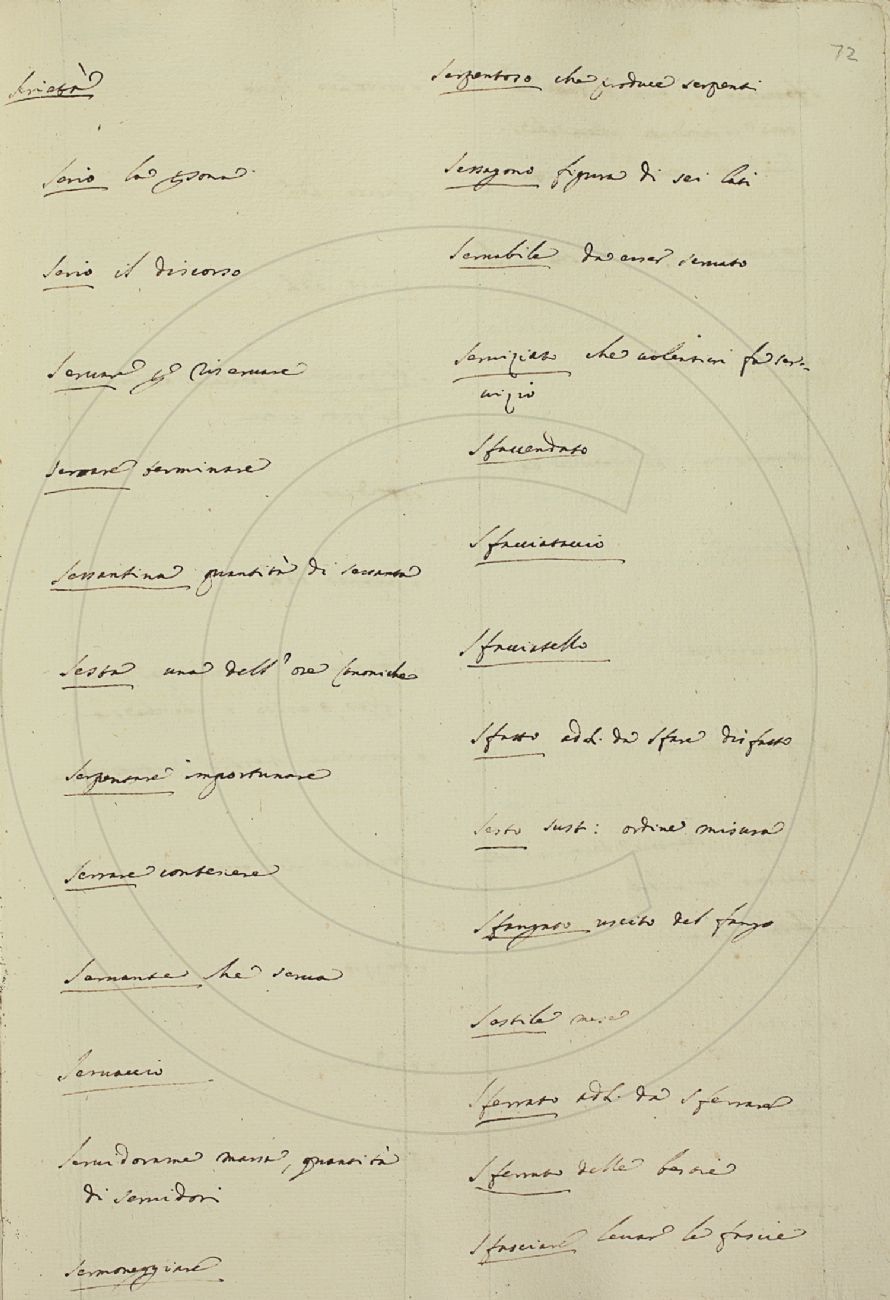 72
Serietà
Serio la persona
Serio il discorso
Servare per riservare
Serrare terminare
Sessantina quantità di sessanta
Sesta una dell'ore Canoniche
Serpentare importunare
Serrare contenere
Servente che serva
Servaccio
Servidorame massa, quantità
di servidori
Sermoneggiare
Serpentoso che produce serpenti
Sessagono figura di sei lati
Servabile da esser servato
Serviziato che volentieri fa ser-
vizio
Sfaccendato
Sfacciataccio
Sfacciatello
Sfatto add. da Sfare disfatto
Sesto sust: ordine misura
Sfangato uscito del fango
Sestile mese
Sferrato add. da Sferrare
Sferrato delle bestie
Sfasciare levar le fascie